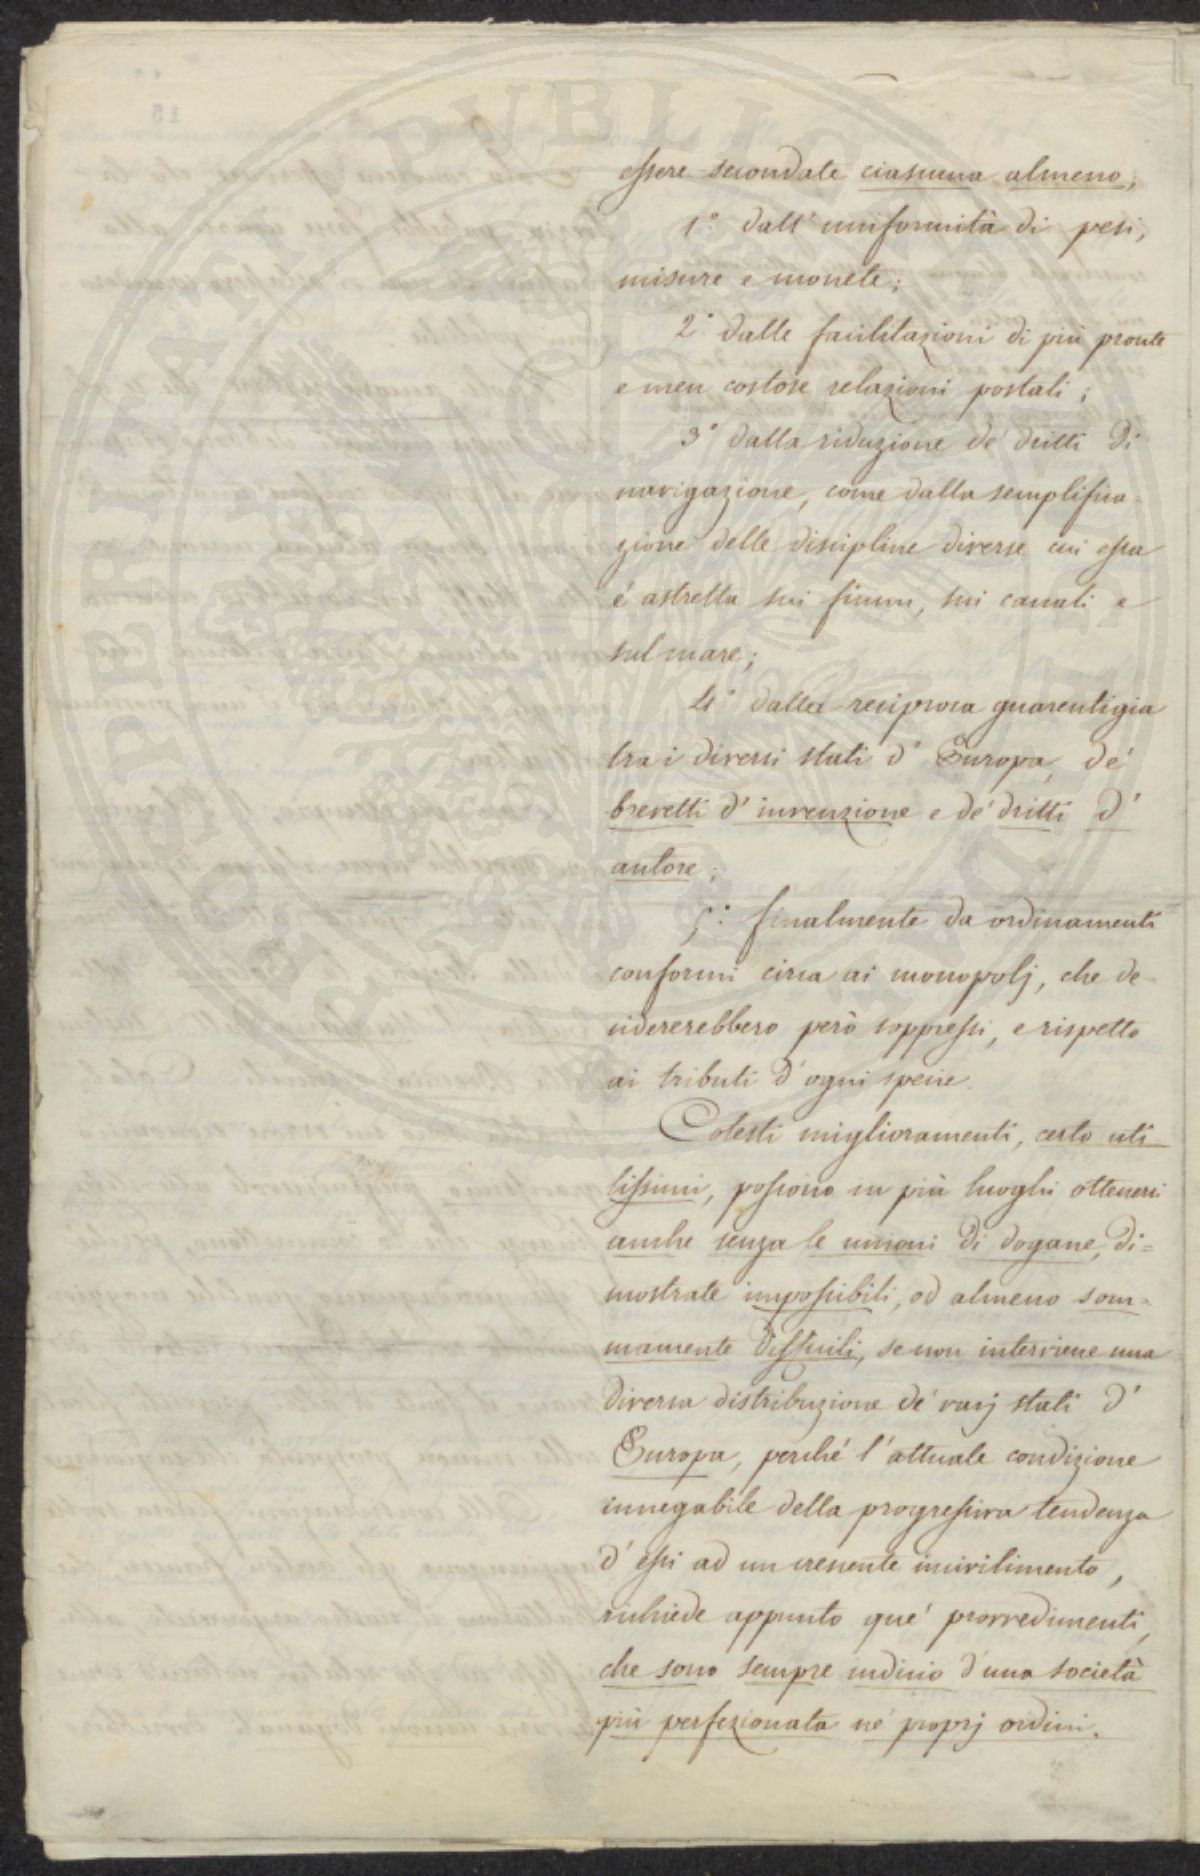 essere secondate ciascuna almeno;
1.° dall' uniformità di pesi,
misure e monete;
2.° dalle facilitazioni di più pronte
e men costose relazioni postali;
3.° dalla riduzione de' dritti di
navigazione, come dalla semplifica-
zione delle discipline diverse cui essa
é astretta sui fiumi, sui canali e
sul mare;
4.° dalla reciproca guarentigia
tra i diversi stati d' Europa, de'
brevetti d' invenzione e de' dritti d'
autore;
5.° finalmente da ordinamenti
conformi circa ai monopolj, che de-
sidererebbero però soppressi, e rispetto
ai tributi d' ogni specie.
Cotesti miglioramenti, certo uti-
lissimi, possono in più luoghi ottenersi
anche senza le unioni di dogane, di=
mostrate impossibili, od almeno som-
mamente difficili, se non interviene una
diversa distribuzione de' varj stati d'
Europa, perché l' attuale condizione
innegabile della progressiva tendenza
d' essi ad un crescente incivilimento,
richiede appunto que' provvedimenti,
che sono sempre indizio d' una società
più perfezionata ne' proprj ordini.